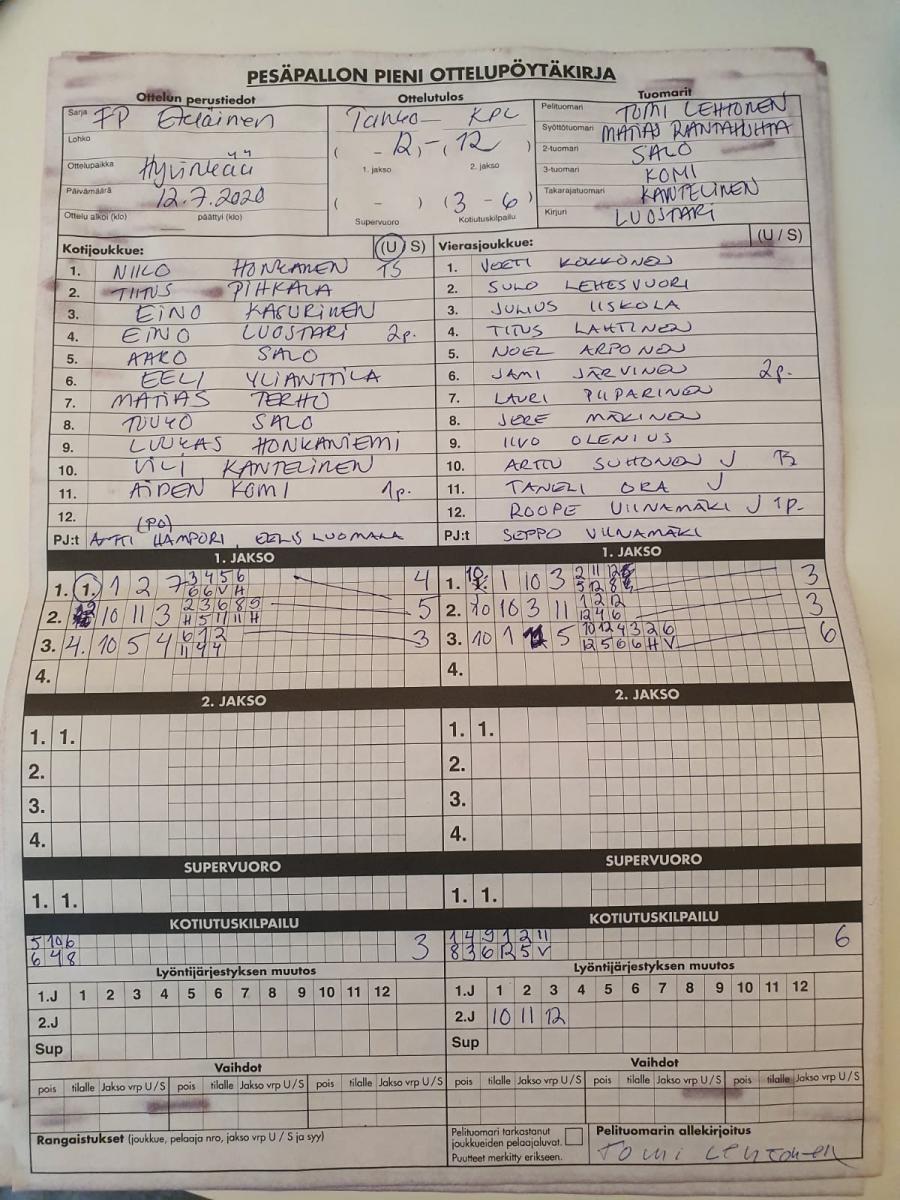 PESÄPALLON PIENI OTTELUPÖYTÄKIRJA
Ottelun perustiedot
Sarja FP Eteläinen
Lohko
Ottelupaikka Hyvinkää
Päivämäärä 12.7.2020
Ottelu alkoi (klo) päättyi (klo)
Ottelutulos
Tahko – KPL
( - 12, - ( 12
1. jakso 2. jakso
( - ) (3 - 6)
Supervuoro Kotiutuskilpailu
Tuomarit
Pelituomari TOMI LEHTONEN
Syöttötuomari MATIAS RANTAHUHTA
2-tuomari SALO
3-tuomari KOMI
Takarajatuomari KANTELINEN
Kirjuri LUOSTARI
Kotijoukkue: (U / S)
1. NIILO HONKANEN TS
2. TIITUS PIHKALA
3. EINO KASURINEN
4. EINO LUOSTARI 2p.
5. AARO SALO
6. EELI YLIANTTILA
7. MATIAS TERHO
8. TUUKO SALO
9. LUUKAS HONKANIEMI
10. VILI KANTELINEN
11. AIDEN KOMI 1p.
12.
(PO)
PJ:t ANTTI HAMPORI, EELIS LUOMALA
Vierasjoukkue: (U / S)
1. VEETI KOKKONEN
2. SULO LEHESVUORI
3. JULIUS IISKOLA
4. TITUS LAHTINEN
5. NOEL ARPONEN
6. JAMI JÄRVINEN 2p.
7. LAURI PIIPARINEN
8. JERE MÄKINEN
9. IIVO OLENIUS
10. ARTTU SUHONEN
11. TANELI ORA
12. ROOPE VIINAMÄKI 1p.
PJ:t SEPPO VIINAMÄKI
1. JAKSO
1. 1. 1 2 7 3 4 5 6 4
6 6 V H
2. 10 11 3 2 3 6 8 9 5
H 5 11 11 H
3. 4. 10 5 4 6 1 2 3
11 4 4
4.
1. JAKSO
1. 10 1 10 3 2 11 12 3
5 12 8
2. 10 10 3 11 1 2 12 3
12 4 6
3. 10 1 5 10 12 4 3 2 6 6
12 5 6 6 H V
4.
2. JAKSO
1. 1.
2.
3.
4.
2. JAKSO
1. 1.
2.
3.
4.
SUPERVUORO
1. 1.
SUPERVUORO
1. 1.
KOTIUTUSKILPAILU
5 10 6 3
6 4 8
KOTIUTUSKILPAILU
1 4 9 1 2 11 6
8 3 6 12 5 V
Lyöntijärjestyksen muutos
1.J 1 2 3 4 5 6 7 8 9 10 11 12
2.J
Sup
Lyöntijärjestyksen muutos
1.J 1 2 3 4 5 6 7 8 9 10 11 12
2.J 10 11 12
Sup
Vaihdot
pois tilalle Jakso vrp U / S pois tilalle Jakso vrp U / S pois tilalle Jakso vrp U / S
Vaihdot
pois tilalle Jakso vrp U / S pois tilalle Jakso vrp U / S pois tilalle Jakso vrp U / S
Rangaistukset (joukkue, pelaaja nro, jakso vrp U / S ja syy)
Pelituomari tarkastanut
joukkueiden pelaajaluvat.
Puutteet merkitty erikseen.
Pelituomarin allekirjoitus
Tomi Lehtonen